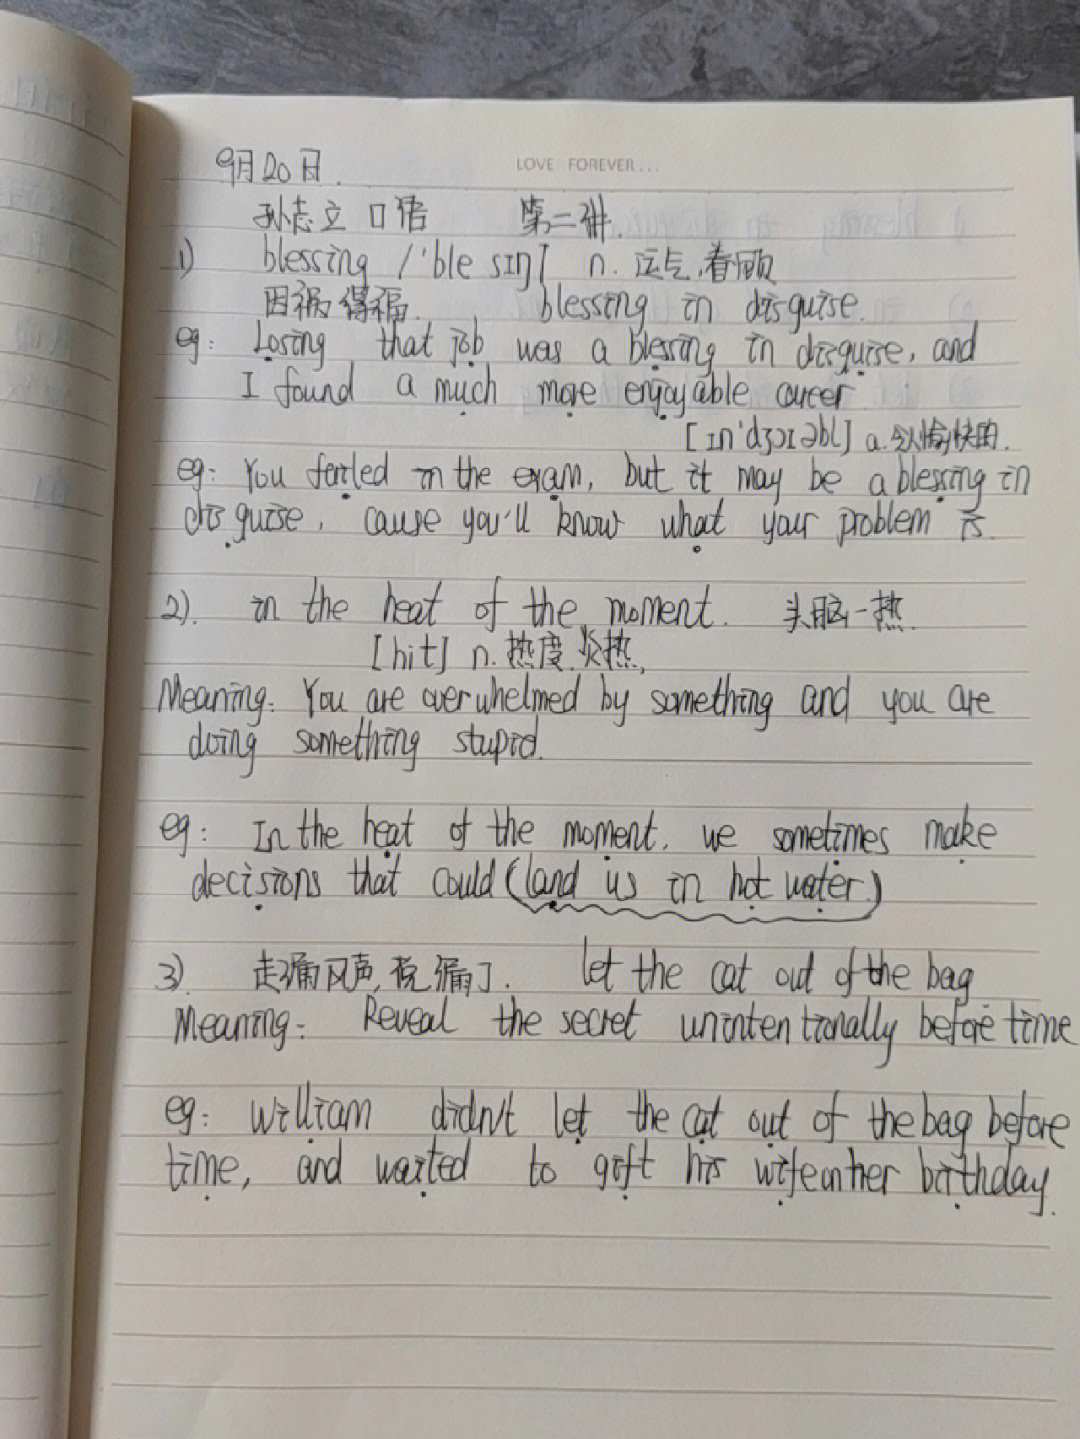 LOVE FOREVER...
9月20日.
孙志立 口语 第二讲.
1) blessing /'ble sɪŋ] n. 运气,眷顾
因祸得福. blessing in disguise.
eg: Losing that job was a blessing in disguise, and
I found a much more enjoyable career
[ɪn'dʒɔɪəbl] a.令人愉快的.
eg: You failed in the exam, but it may be a blessing in
disguise, cause you'll know what your problem is.
2). in the heat of the moment. 头脑一热.
[hit] n.热度,炎热,
Meaning: You are overwhelmed by something and you are
doing something stupid.
eg: In the heat of the moment, we sometimes make
decisions that could (land us in hot water.)
3). 走漏风声,说漏了. let the cat out of the bag
Meaning: Reveal the secret unintentionally before time
eg: William didn't let the cat out of the bag before
time, and waited to gift his wife on her birthday.